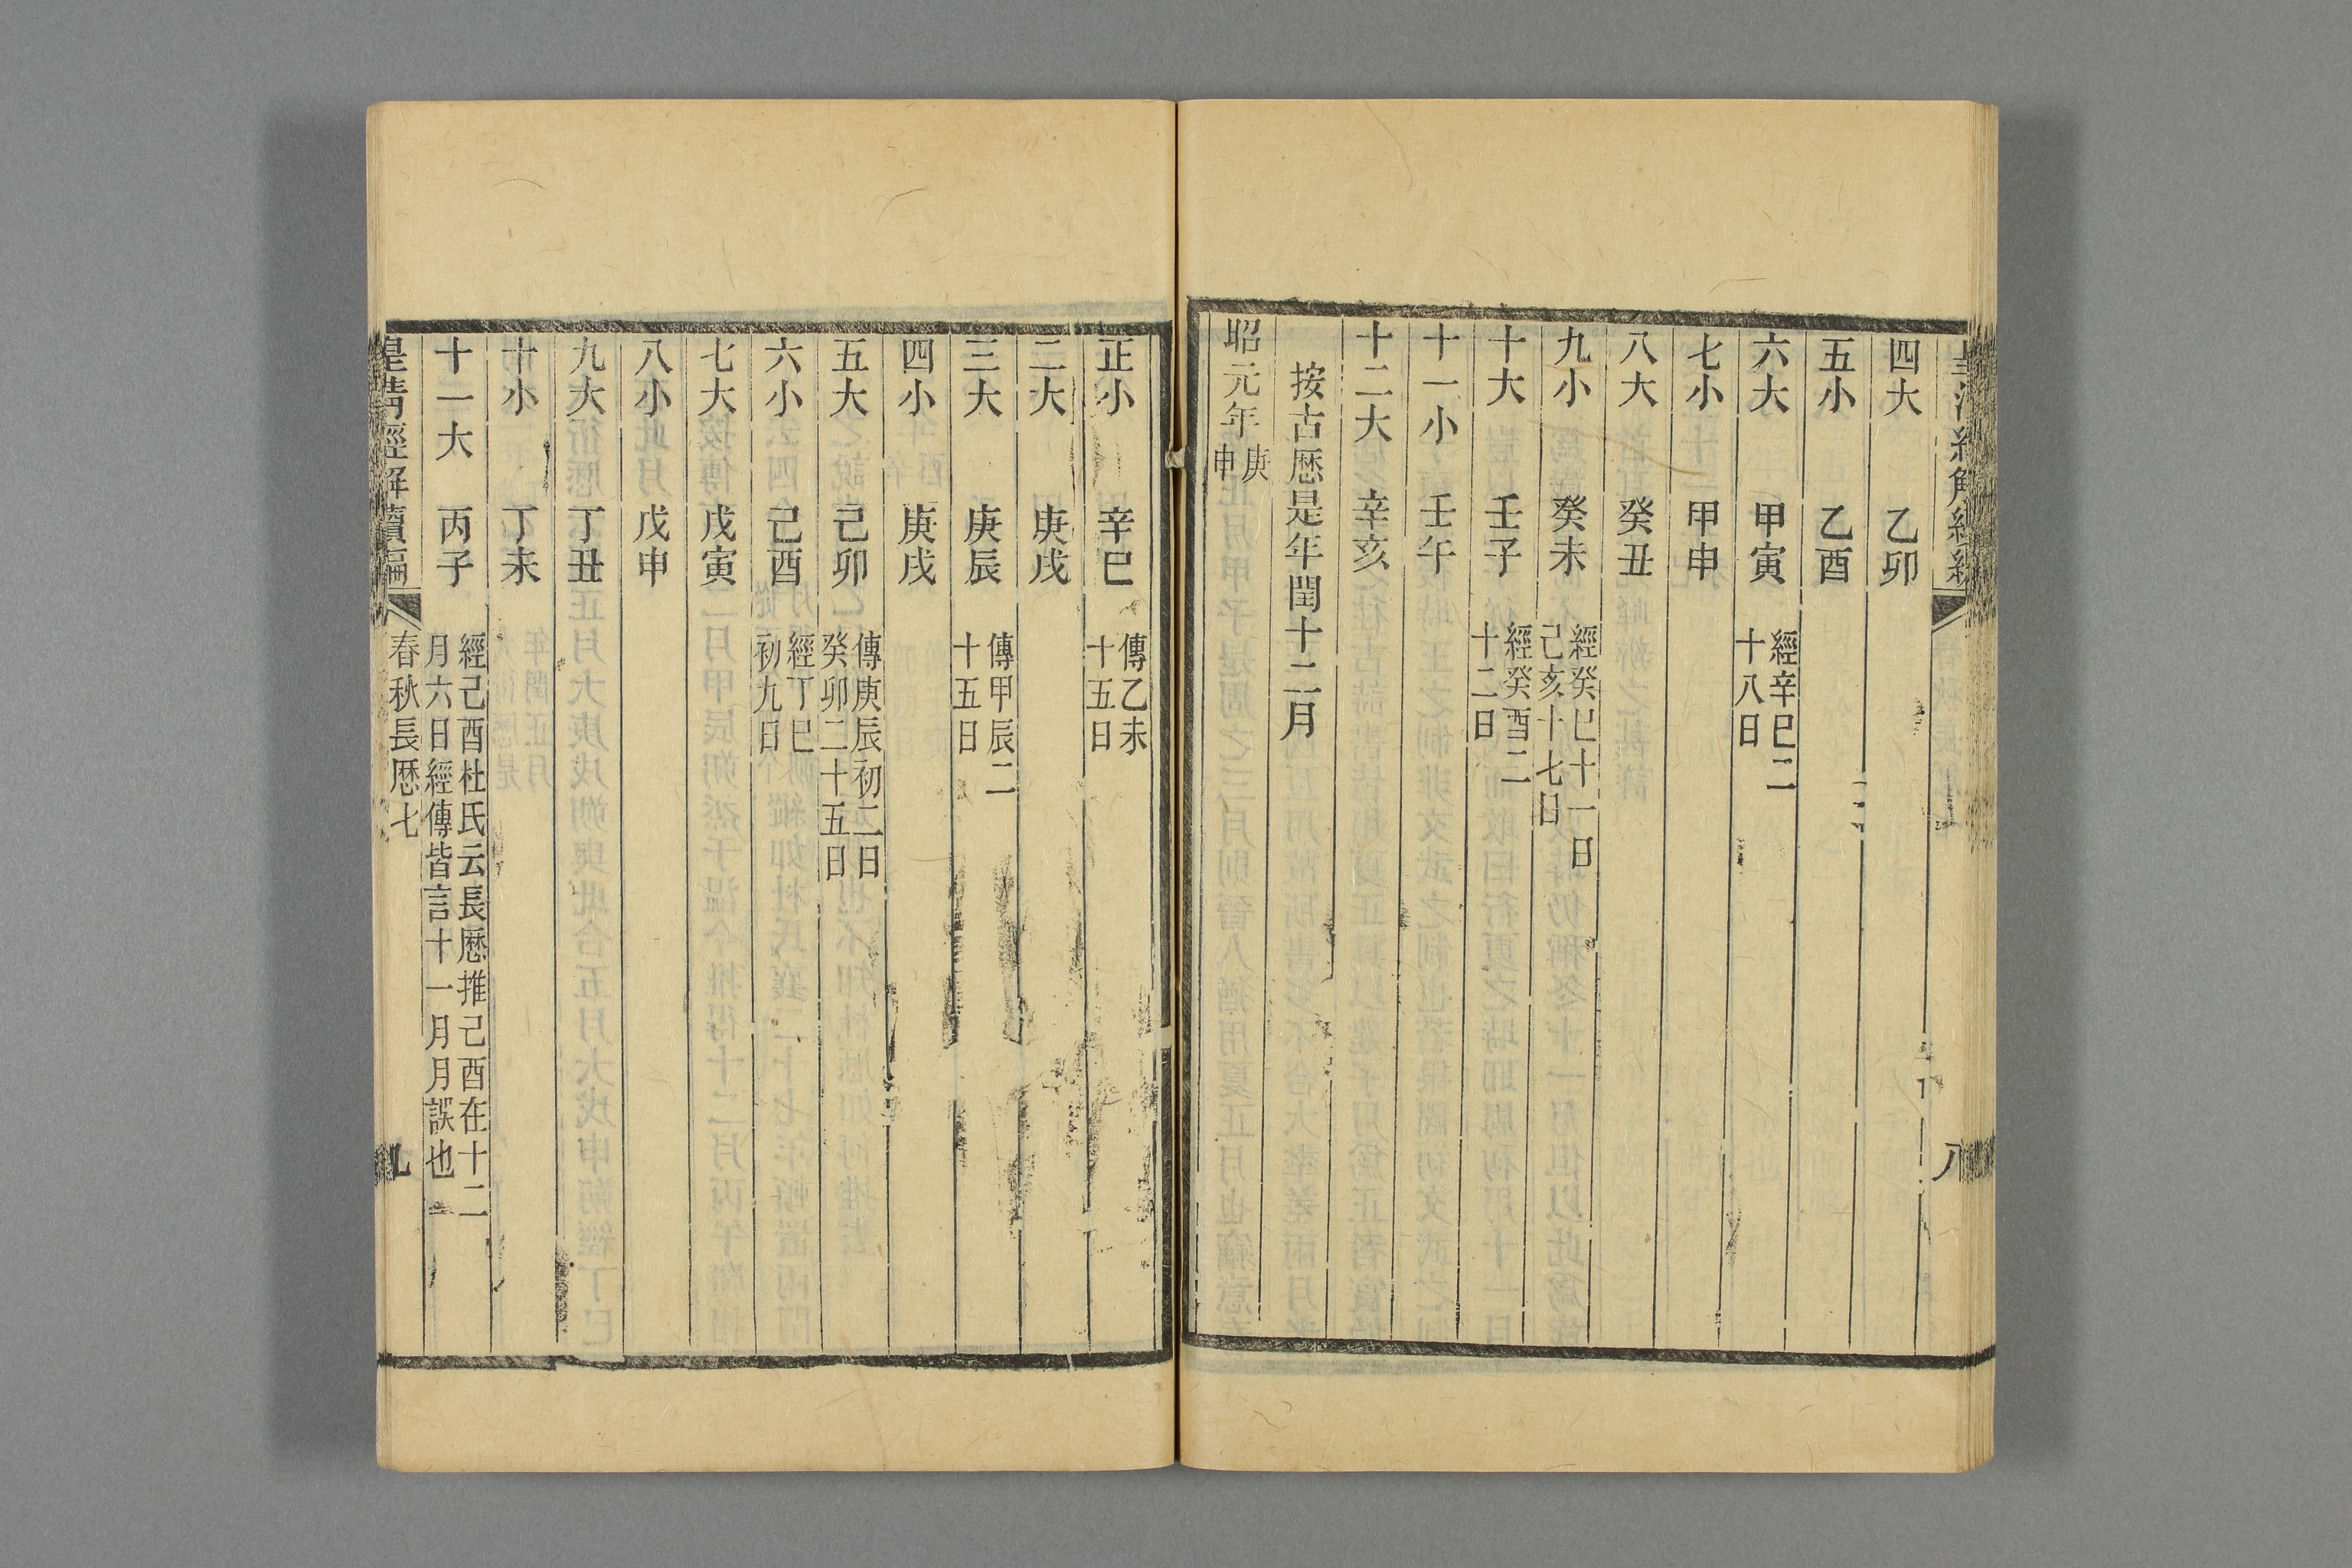 四大　乙卯
五小　乙酉
六大　甲寅　經辛巳二
十八日
七小　甲申
八大　癸丑
九小　癸未　經癸巳十一日
己亥十七日
十大　壬子　經癸酉二
十二日
十一小　壬午
十二大　辛亥
按古厯是年閏十二月
昭元年庚
申
正小　辛巳　傳乙未
十五日
二大　庚戌
三大　庚辰　傳甲辰二
十五日
四小　庚戌
五大　己卯　傳庚辰初二日
癸卯二十五日
六小　己酉　經丁巳
初九日
七大　戊寅
八小　戊申
九大　丁丑
十小　丁未
十一大　丙子　經己酉杜氏云長厯推己酉在十二
月六日經傳皆言十一月月誤也
皇清經解續編　春秋長厯七　九